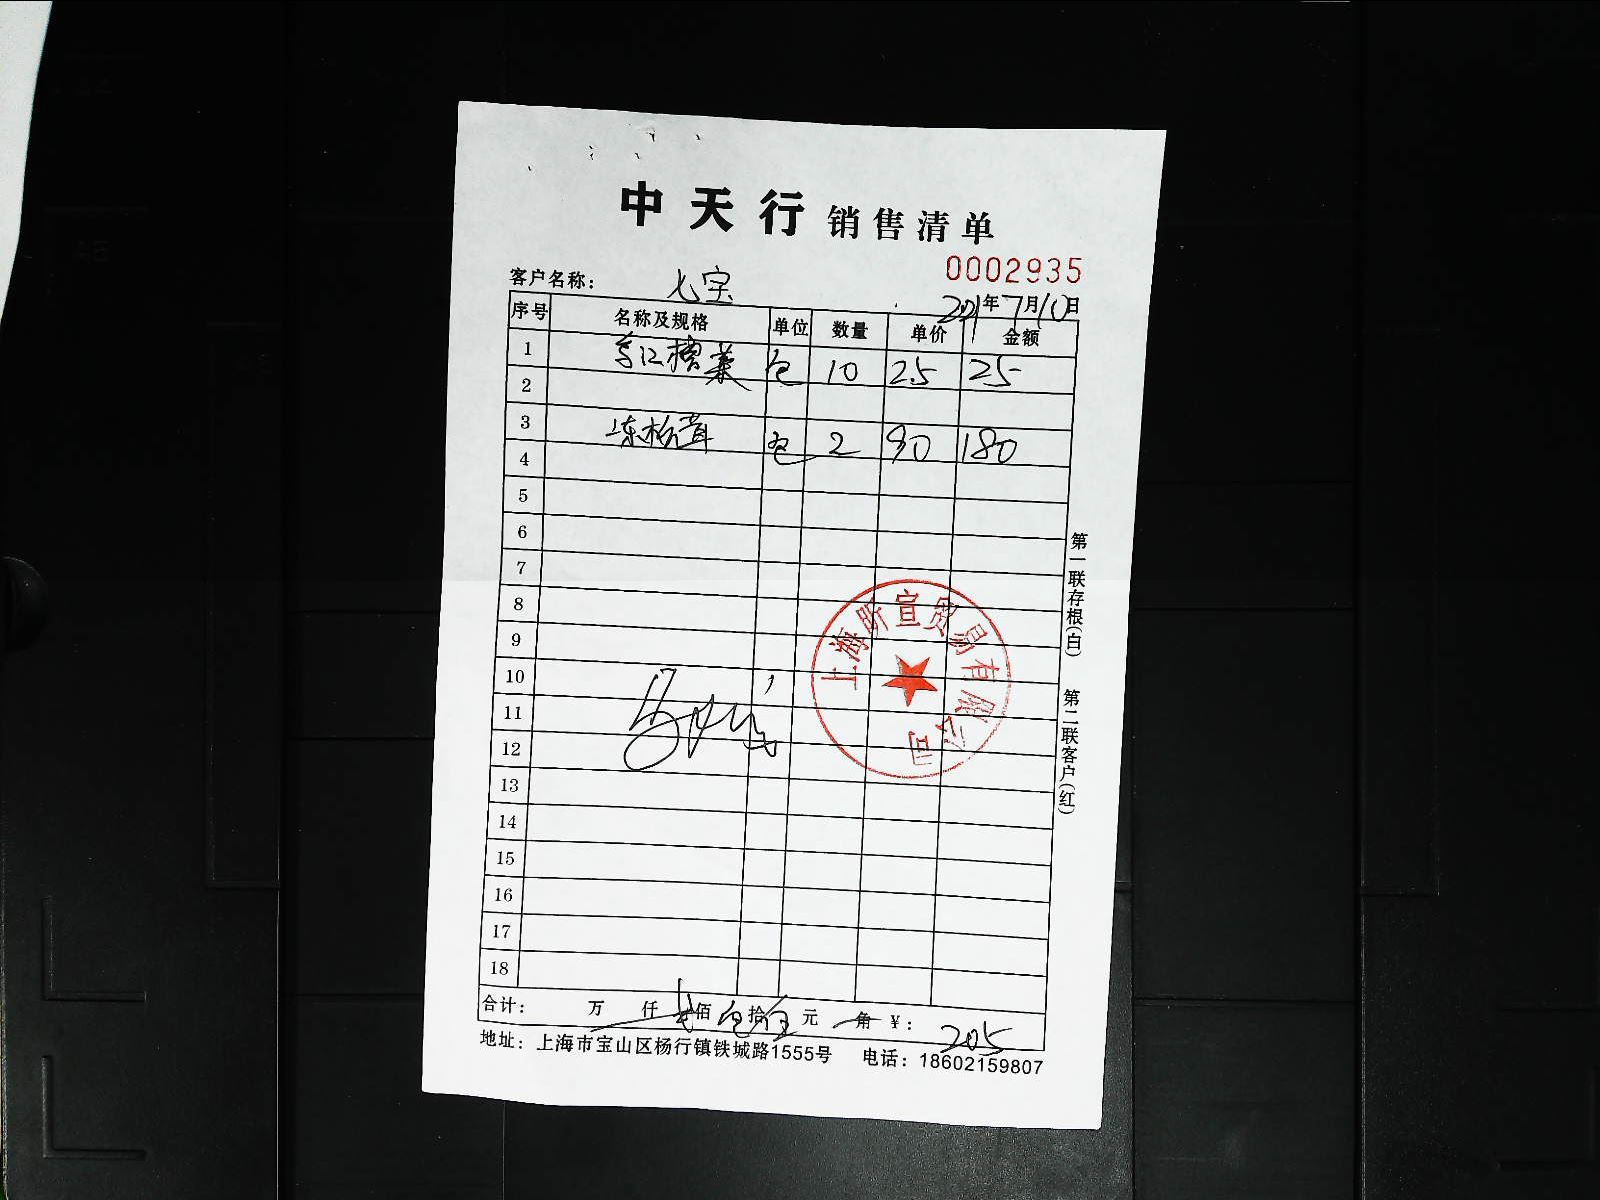 中天行 销售清单
0002935
客户名称： 七宝
2021年7月10日
序号 名称及规格 单位 数量 单价 金额
1 包 10 2.5 25
2
3 冻松茸 包 2 90 180
4
5
6
7
8
9
10
11
12
13
14
15
16
17
18
上海昕宣贸易有限公司
第一联存根(白) 第二联客户(红)
合计： 万 仟 佰 拾 元 角 ￥： 205
地址：上海市宝山区杨行镇铁城路1555号 电话：18602159807